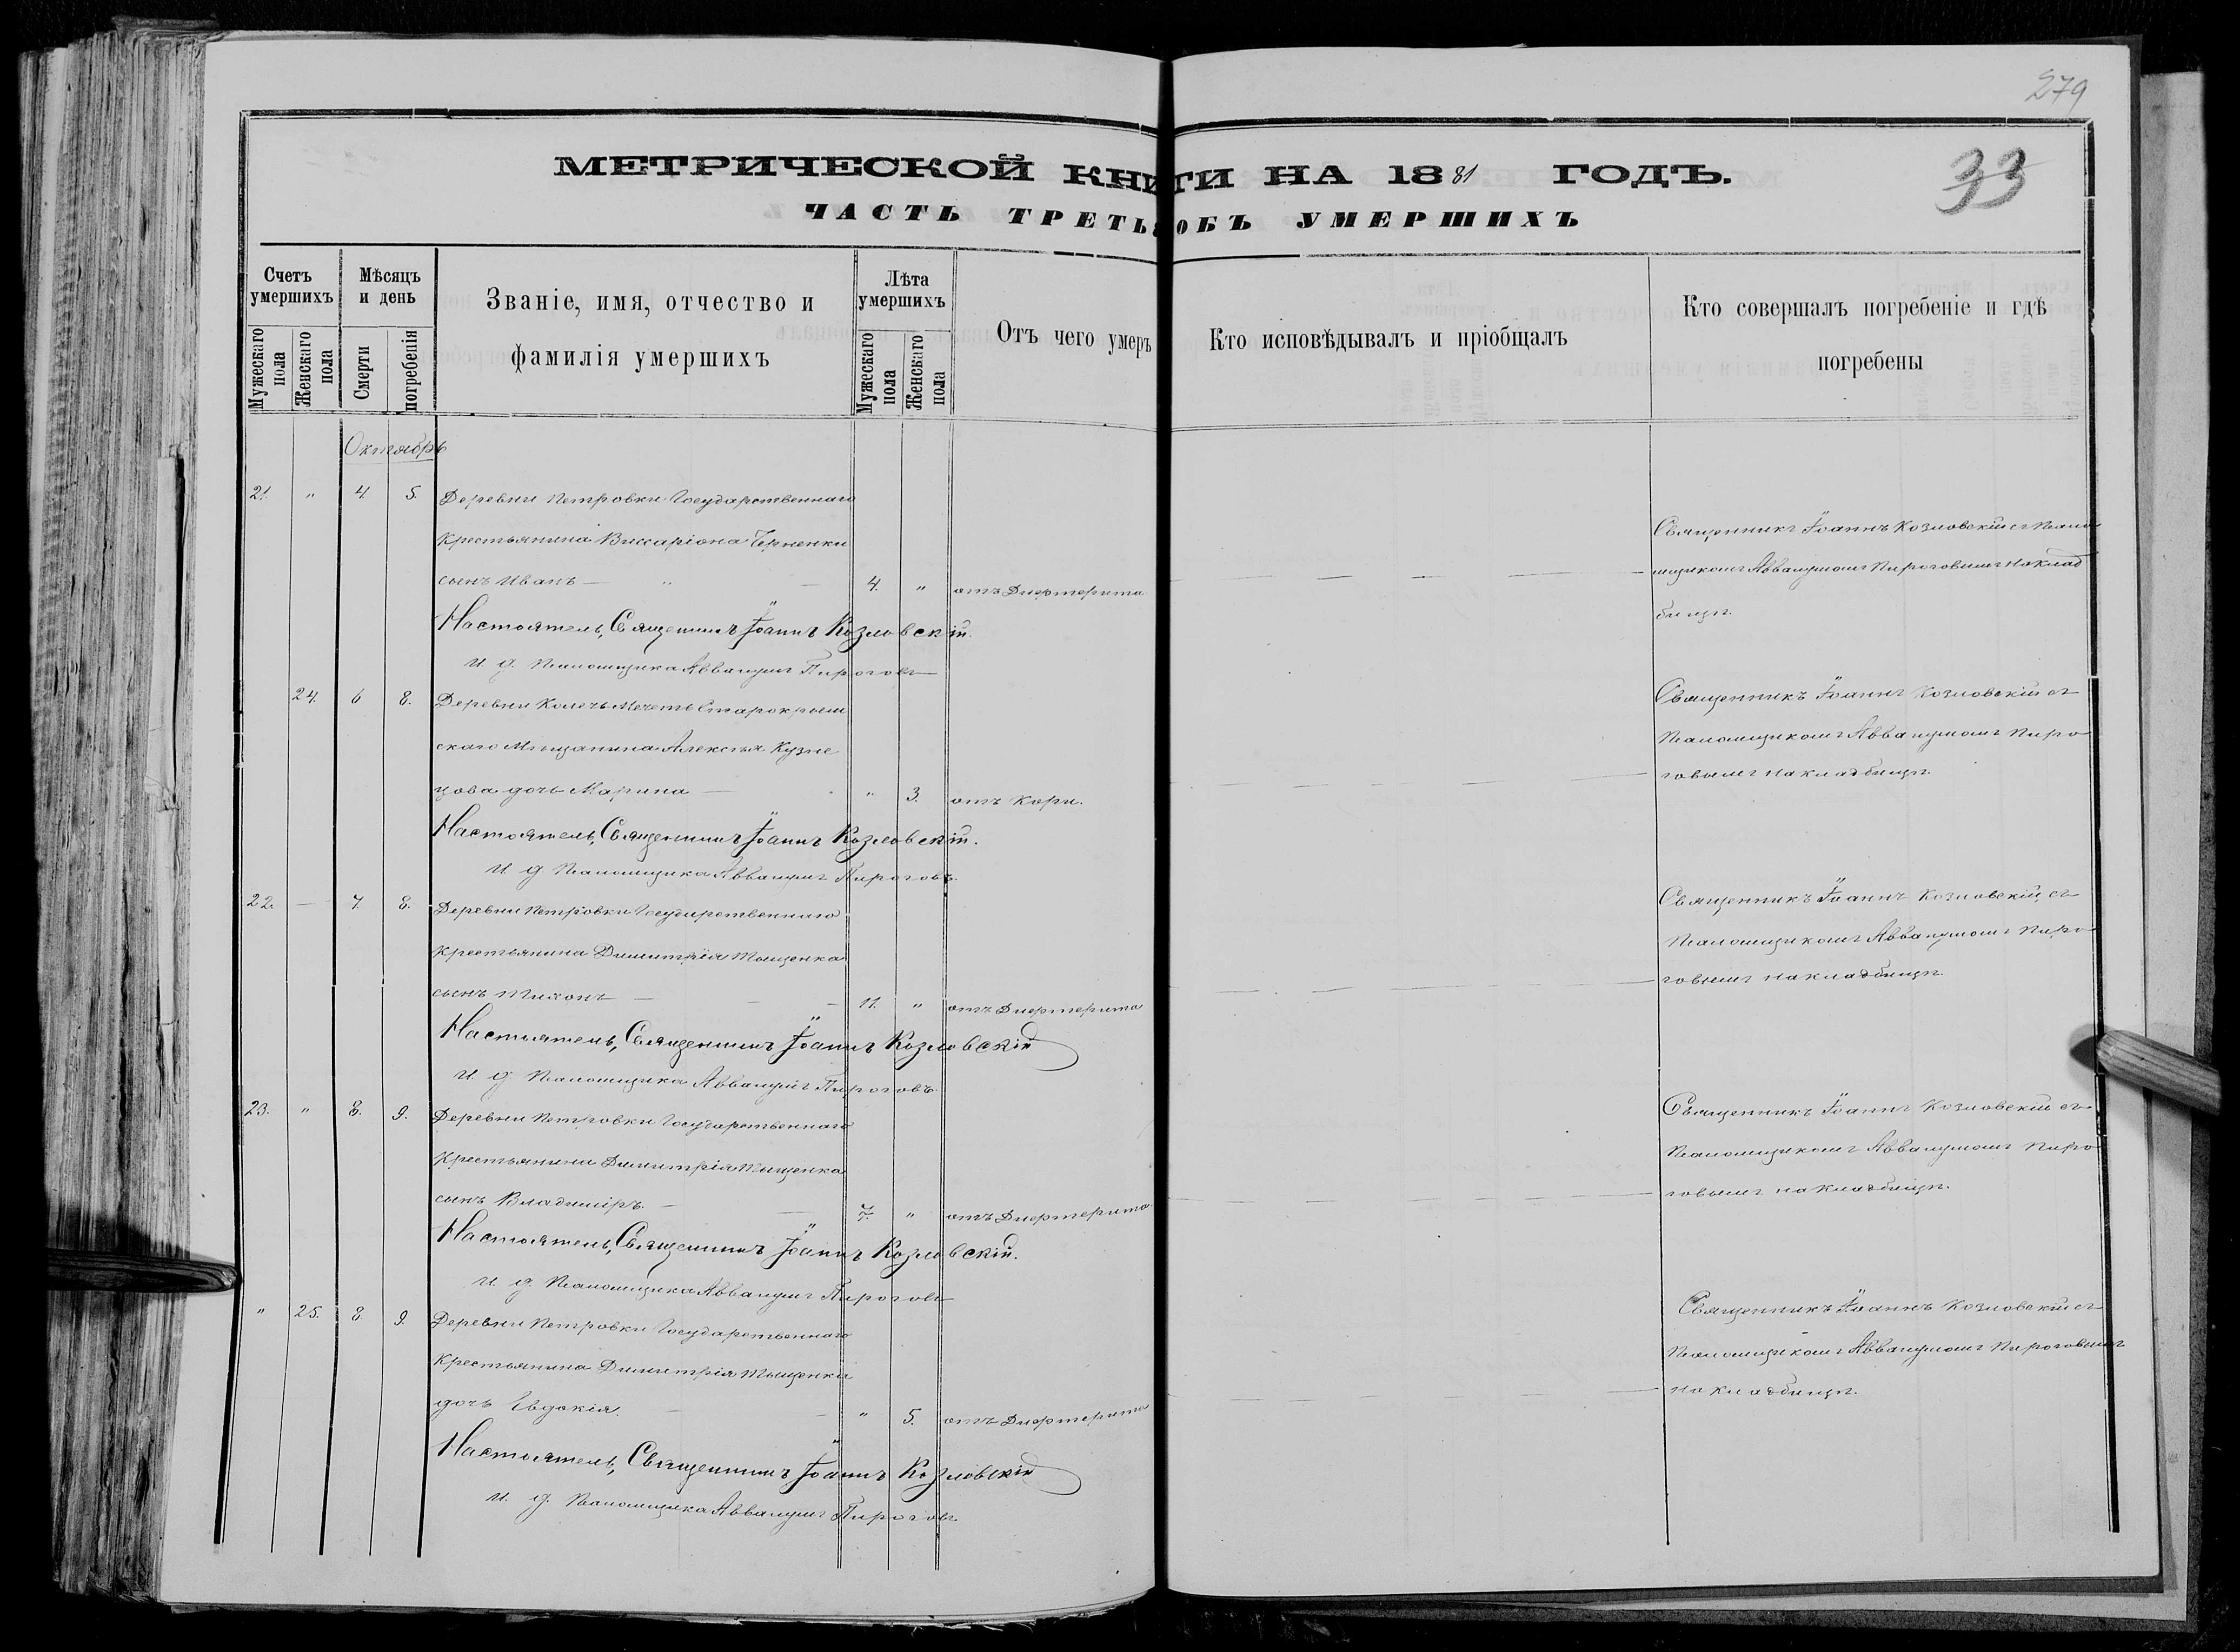 279
33
МЕТРИЧЕСКОЙ КНИГИ НА 1881 ГОДЪ.
ЧАСТЬ ТРЕТЬЯ ОБЪ УМЕРШИХЪ
Счетъ умершихъ
Мужескаго пола
Женскаго пола
Мѣсяцъ и день
Смерти
погребенія
Званіе, имя, отчество и
фамилія умершихъ
Лѣта умершихъ
Мужескаго пола
Женскаго пола
Отъ чего умеръ
Кто исповѣдывалъ и пріобщалъ
Кто совершалъ погребеніе и гдѣ
погребены
Октябрь
21. " 4. 5. Деревни Петровки Государственнаго
Крестьянина Виссаріона Черненки
сынъ Иванъ — " — 4. " отъ Дифтерита
Священникъ Іоаннъ Козловскій съ Псало
мщикомъ Аввакумомъ Пироговымъ на клад
бищѣ.
Настоятель, Священникъ Іоаннъ Козловскій.
И. д. Псаломщика Аввакумъ Пироговъ
24. 6 8. Деревни Колечь-Мечеть Старокрым
скаго Мѣщанина Алексѣя Кузне
цова дочь Марина — " 3. отъ Кори.
Священникъ Іоаннъ Козловскій съ
Псаломщикомъ Аввакумомъ Пиро
говымъ на кладбищѣ.
Настоятель, Священникъ Іоаннъ Козловскій.
И. д. Псаломщика Аввакумъ Пироговъ.
22. — 7. 8. Деревни Петровки Государственнаго
Крестьянина Димитрія Тыщенка
сынъ Тихонъ — — — 11. " отъ Дифтерита
Священникъ Іоаннъ Козловскій, съ
Псаломщикомъ Аввакумомъ Пиро
говымъ на кладбищѣ.
Настоятель, Священникъ Іоаннъ Козловскій
И. д. Псаломщика Аввакумъ Пироговъ.
23. " 8. 9. Деревни Петровки Государственнаго
Крестьянина Димитрія Тыщенка
сынъ Владиміръ. — — 7. " отъ Дифтерита
Священникъ Іоаннъ Козловскій съ
Псаломщикомъ Аввакумомъ Пиро
говымъ на кладбищѣ.
Настоятель, Священникъ Іоаннъ Козловскій.
И. д. Псаломщика Аввакумъ Пироговъ
" 25. 8. 9. Деревни Петровки Государственнаго
Крестьянина Димитрія Тыщенка
дочь Евдокія. — — " 5. отъ Дифтерита
Священникъ Іоаннъ Козловскій съ
Псаломщикомъ Аввакумомъ Пироговымъ
на кладбищѣ.
Настоятель, Священникъ Іоаннъ Козловскій
И. д. Псаломщика Аввакумъ Пироговъ.